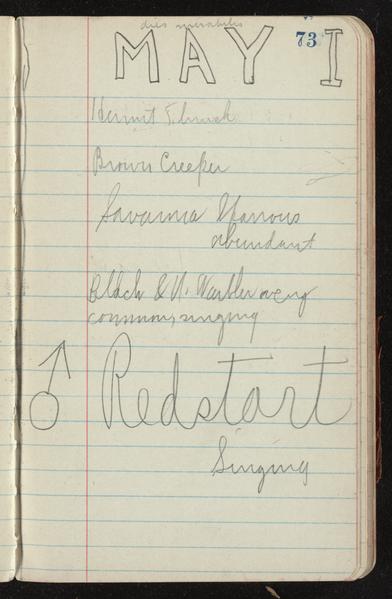 dies mirabilis
MAY I
73
Hermit Thrush
Brown Creeper
Savanna Sparrows
abundant
Black & W. Warbler very
common, singing
♂ Redstart
Singing